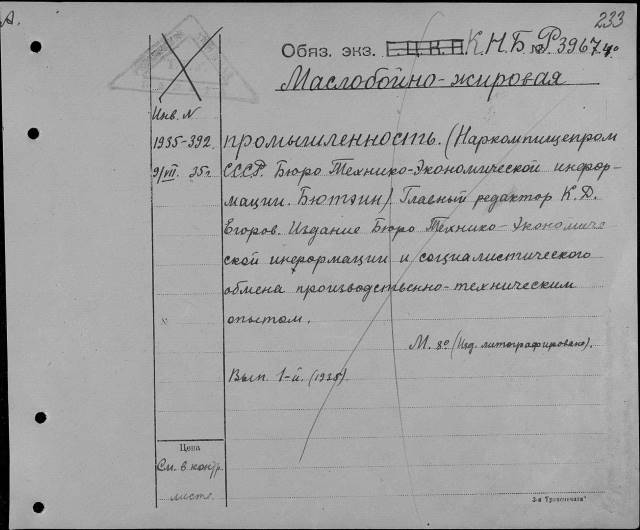 А.
233
Обяз. экз. Г.Ц.К.П. К.Н.Б. № Р.3967
Маслобойно-жировая
Инв. N
1935-392. промышленность. (Наркомпищепром
9/VII. 35г. СССР. Бюро Технико-Экономической инфор-
мации. Бютэин). Главный редактор К.Д.
Егоров. Издание Бюро Технико-Экономиче
ской информации и социалистического
обмена производственно-техническим
опытом.
М. 8° (Изд. литографировано).
Вып. 1-й. (1935)
Цена
См. в контр.
листе.
3-я Транспечати